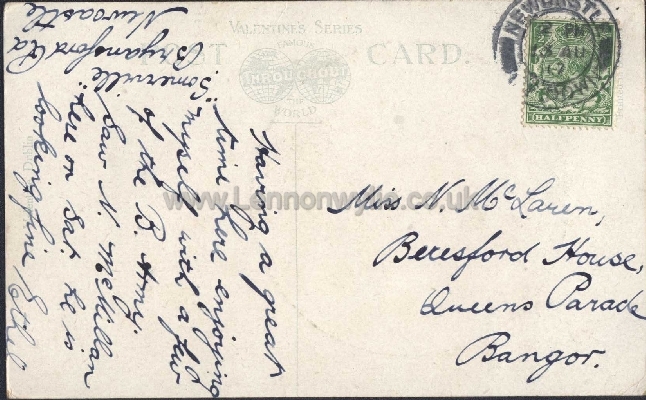 VALENTINE'S SERIES
FAMOUS
THROUGHOUT
THE
WORLD
POST CARD.
NEWCASTLE
CO. DOWN
HALFPENNY
"Somerville"
Bryansford Rd
Newcastle
Having a great
time here enjoying
myself with a few
of the B. Army.
Saw N. McMillan
here on Sat. he is
looking fine Ethel
Miss N. McLaren,
Beresford House,
Queens Parade
Bangor.
www.Lennonwylie.co.uk